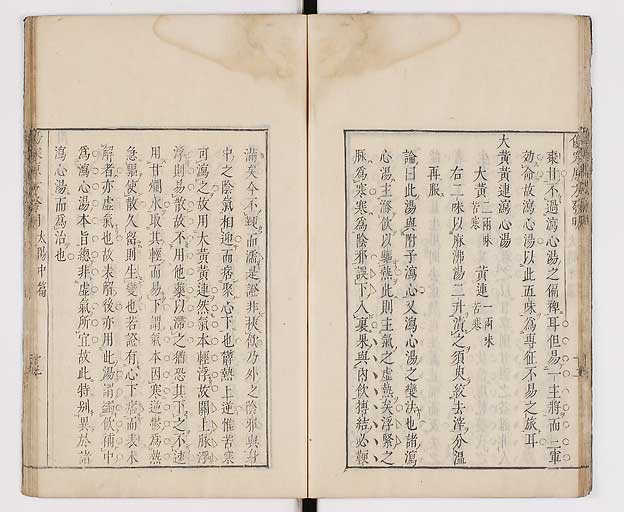 棗甘不過瀉心湯之偏裨耳但易一主將而二軍
効命故瀉心湯以此五味為專征不易之旅耳
大黃黃連瀉心湯
大黃二兩味苦寒　黃連一兩味苦寒
右二味以麻沸湯二升漬之須臾絞去滓分溫
再服
論曰此湯與附子瀉心又瀉心湯之變法也諸瀉
心湯主滌飲以驅熱此則主氣之虛熱矣浮緊之
脉為寒寒為陰邪誤下入裏果與內飲搏結必鞕
滿矣今不鞕而濡是證非挾飲乃外之陰邪與身
中之陰氣相逆而痞聚心下也蓄熱上逆惟苦寒
可瀉之故用大黃黃連然氣本輕浮故關上脉浮
浮則易散故不用他藥以滯之猶恐其下之不速
用甘爛水取其輕而易下謂氣本因寒逆鬱為熱
急驅使散久留則生變也若證有心下痞而表未
解者亦虛氣也故表解後亦用此湯謂瀉飲術中
為瀉心湯本旨總非虛氣所宜故此特别異於諸
瀉心湯而為治也
太陽中篇